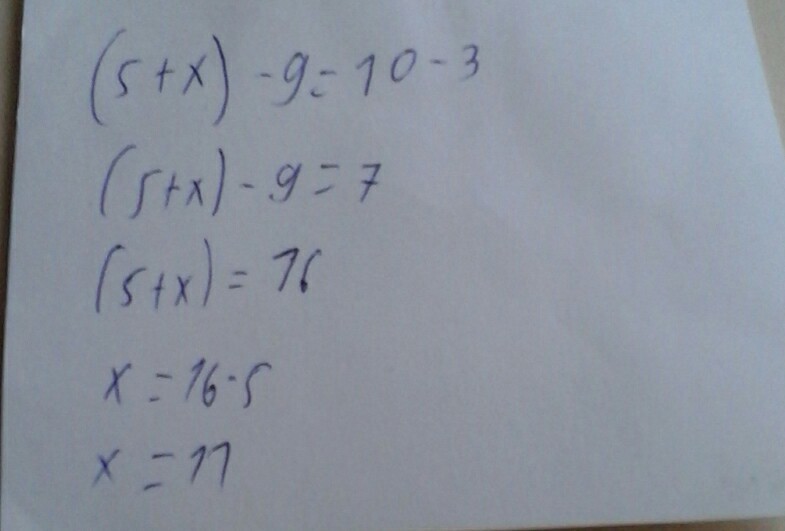 (5+x) -9=10-3
(5+x)-9=7
(5+x)=16
x=16-5
x=11